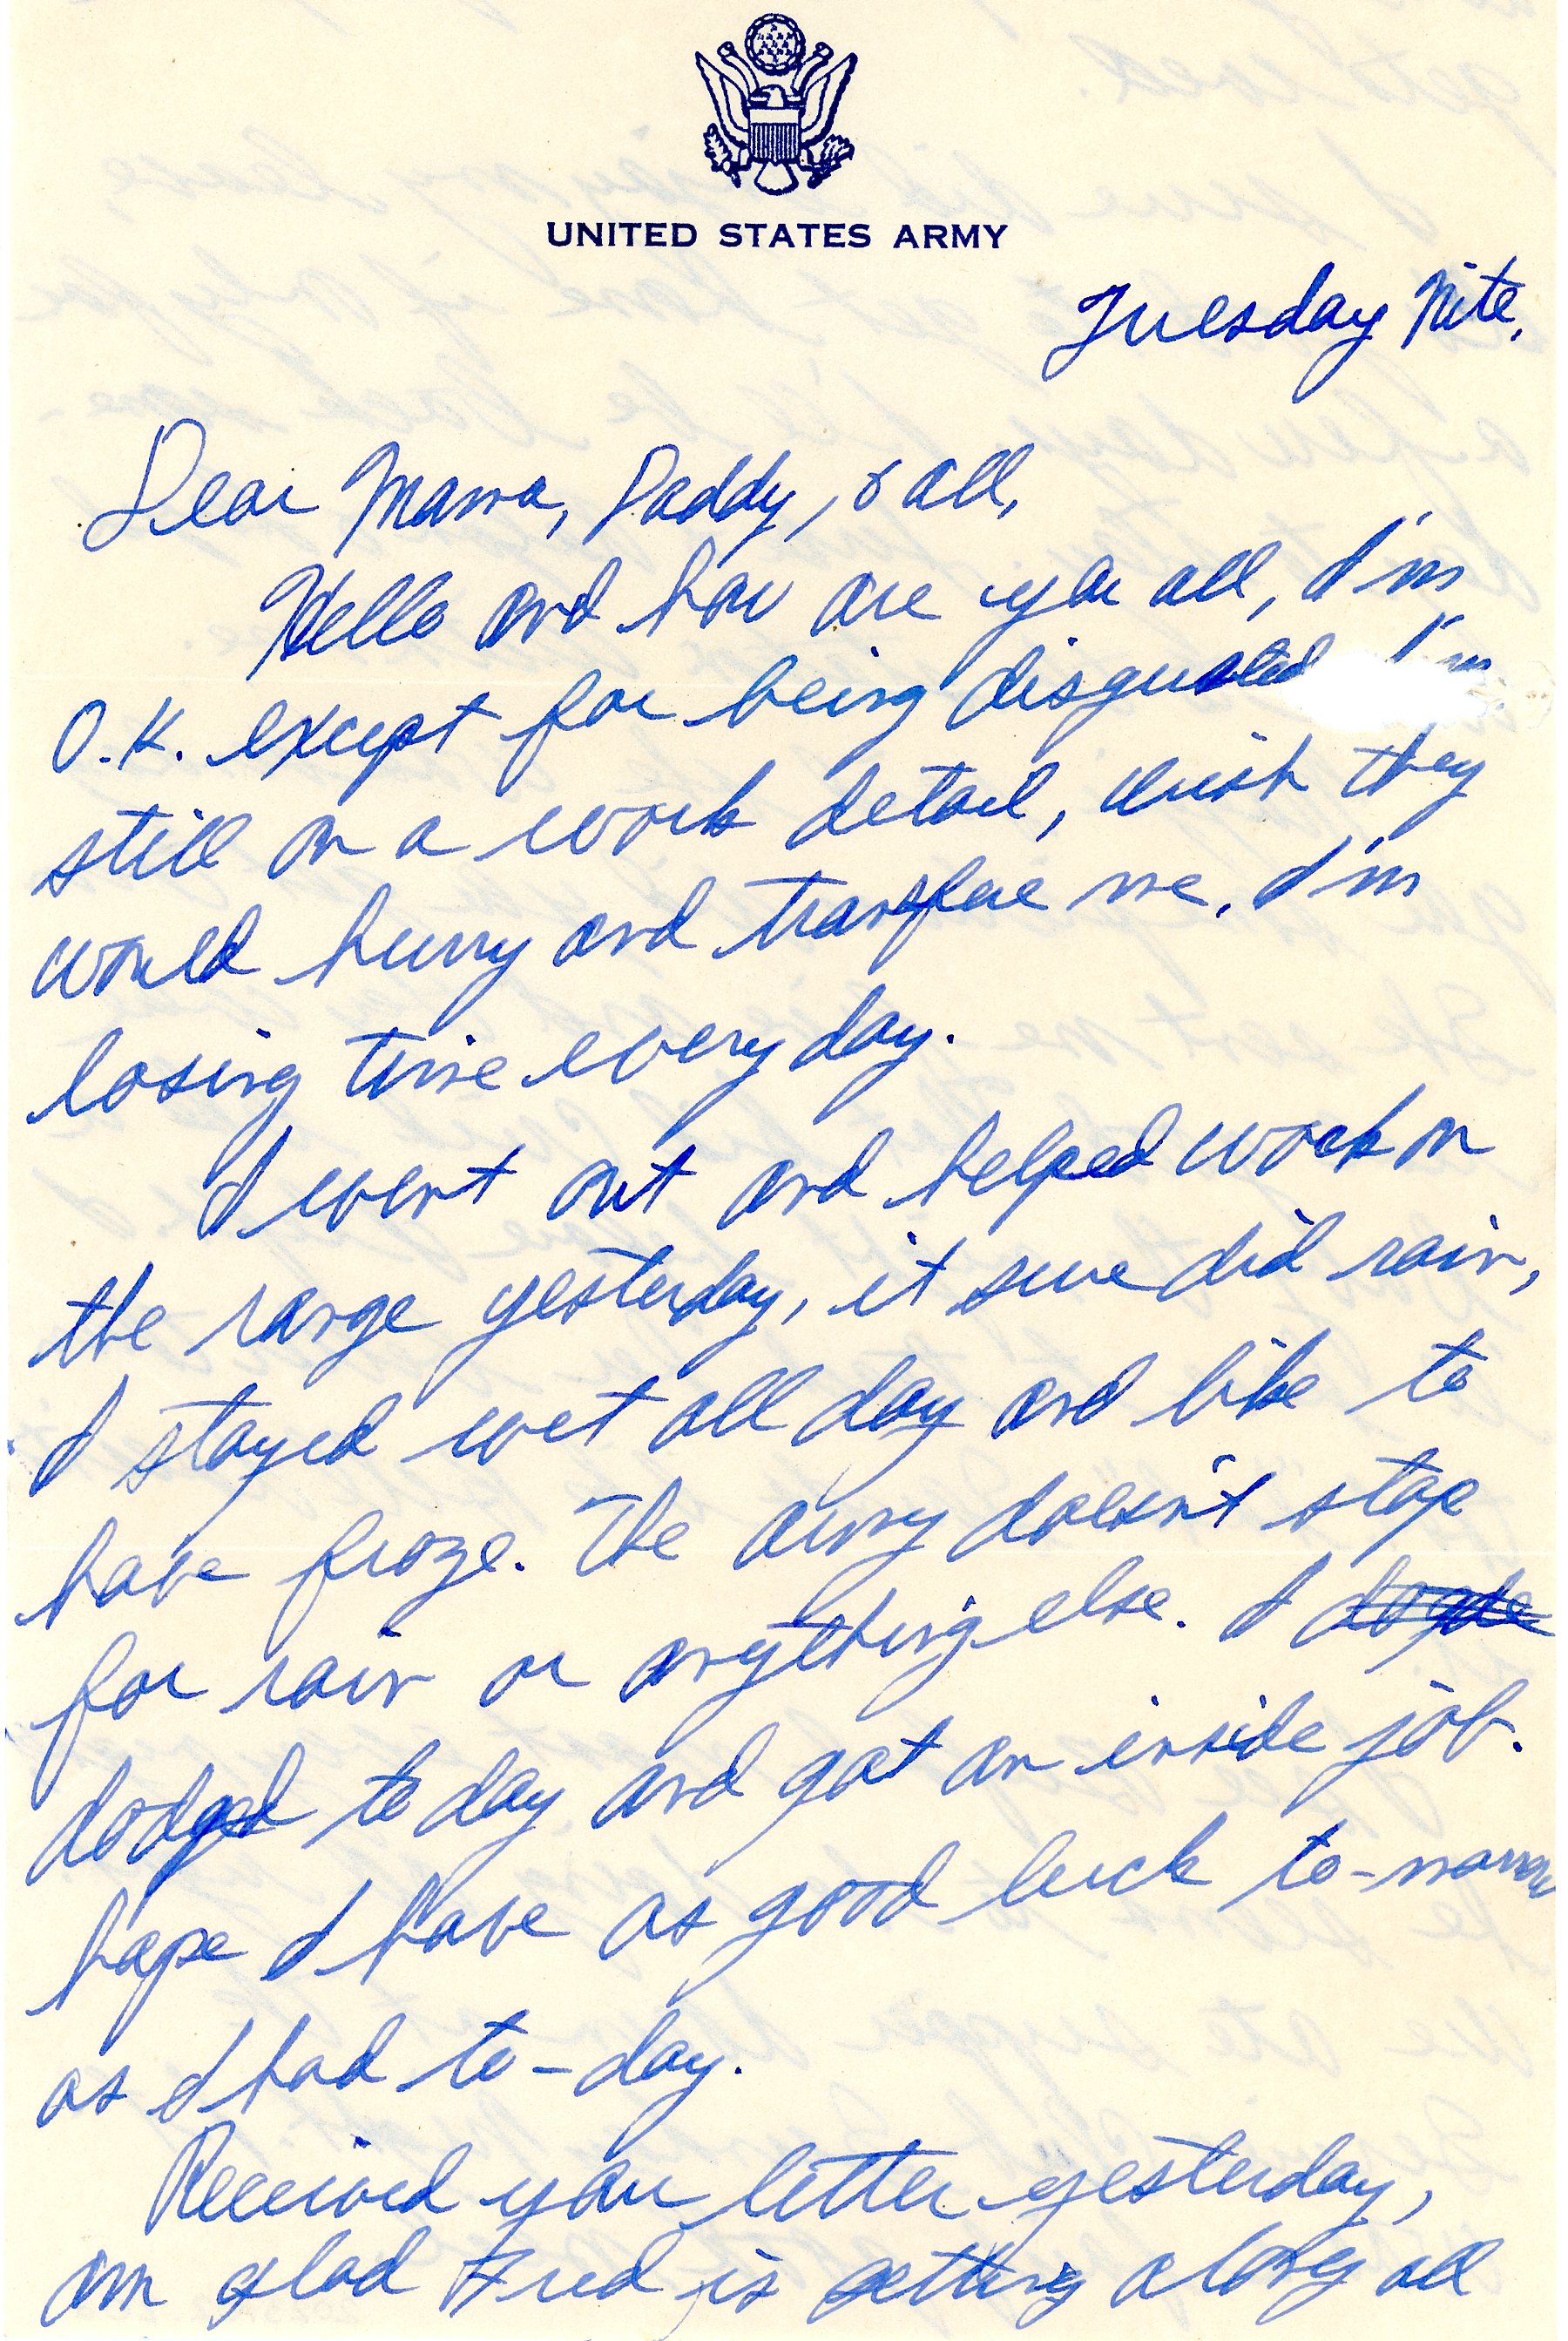 UNITED STATES ARMY
Tuesday Nite,
Dear Mama, Daddy, & all,
Hello and how are you all, I'm
O.K. except for being disgusted I'm
still on a work detail, wish they
would hurry and transfere me, I'm
losing time every day.
I went out and helped work on
the range yesterday, it sure did rain,
I stayed wet all day and like to
have froze. The army doesn't stop
for rain or anything else. I
dodged to day and got an inside job.
hope I have as good luck to-morrow
as I had to-day.
Received your letter yesterday,
am glad Fred is getting along all